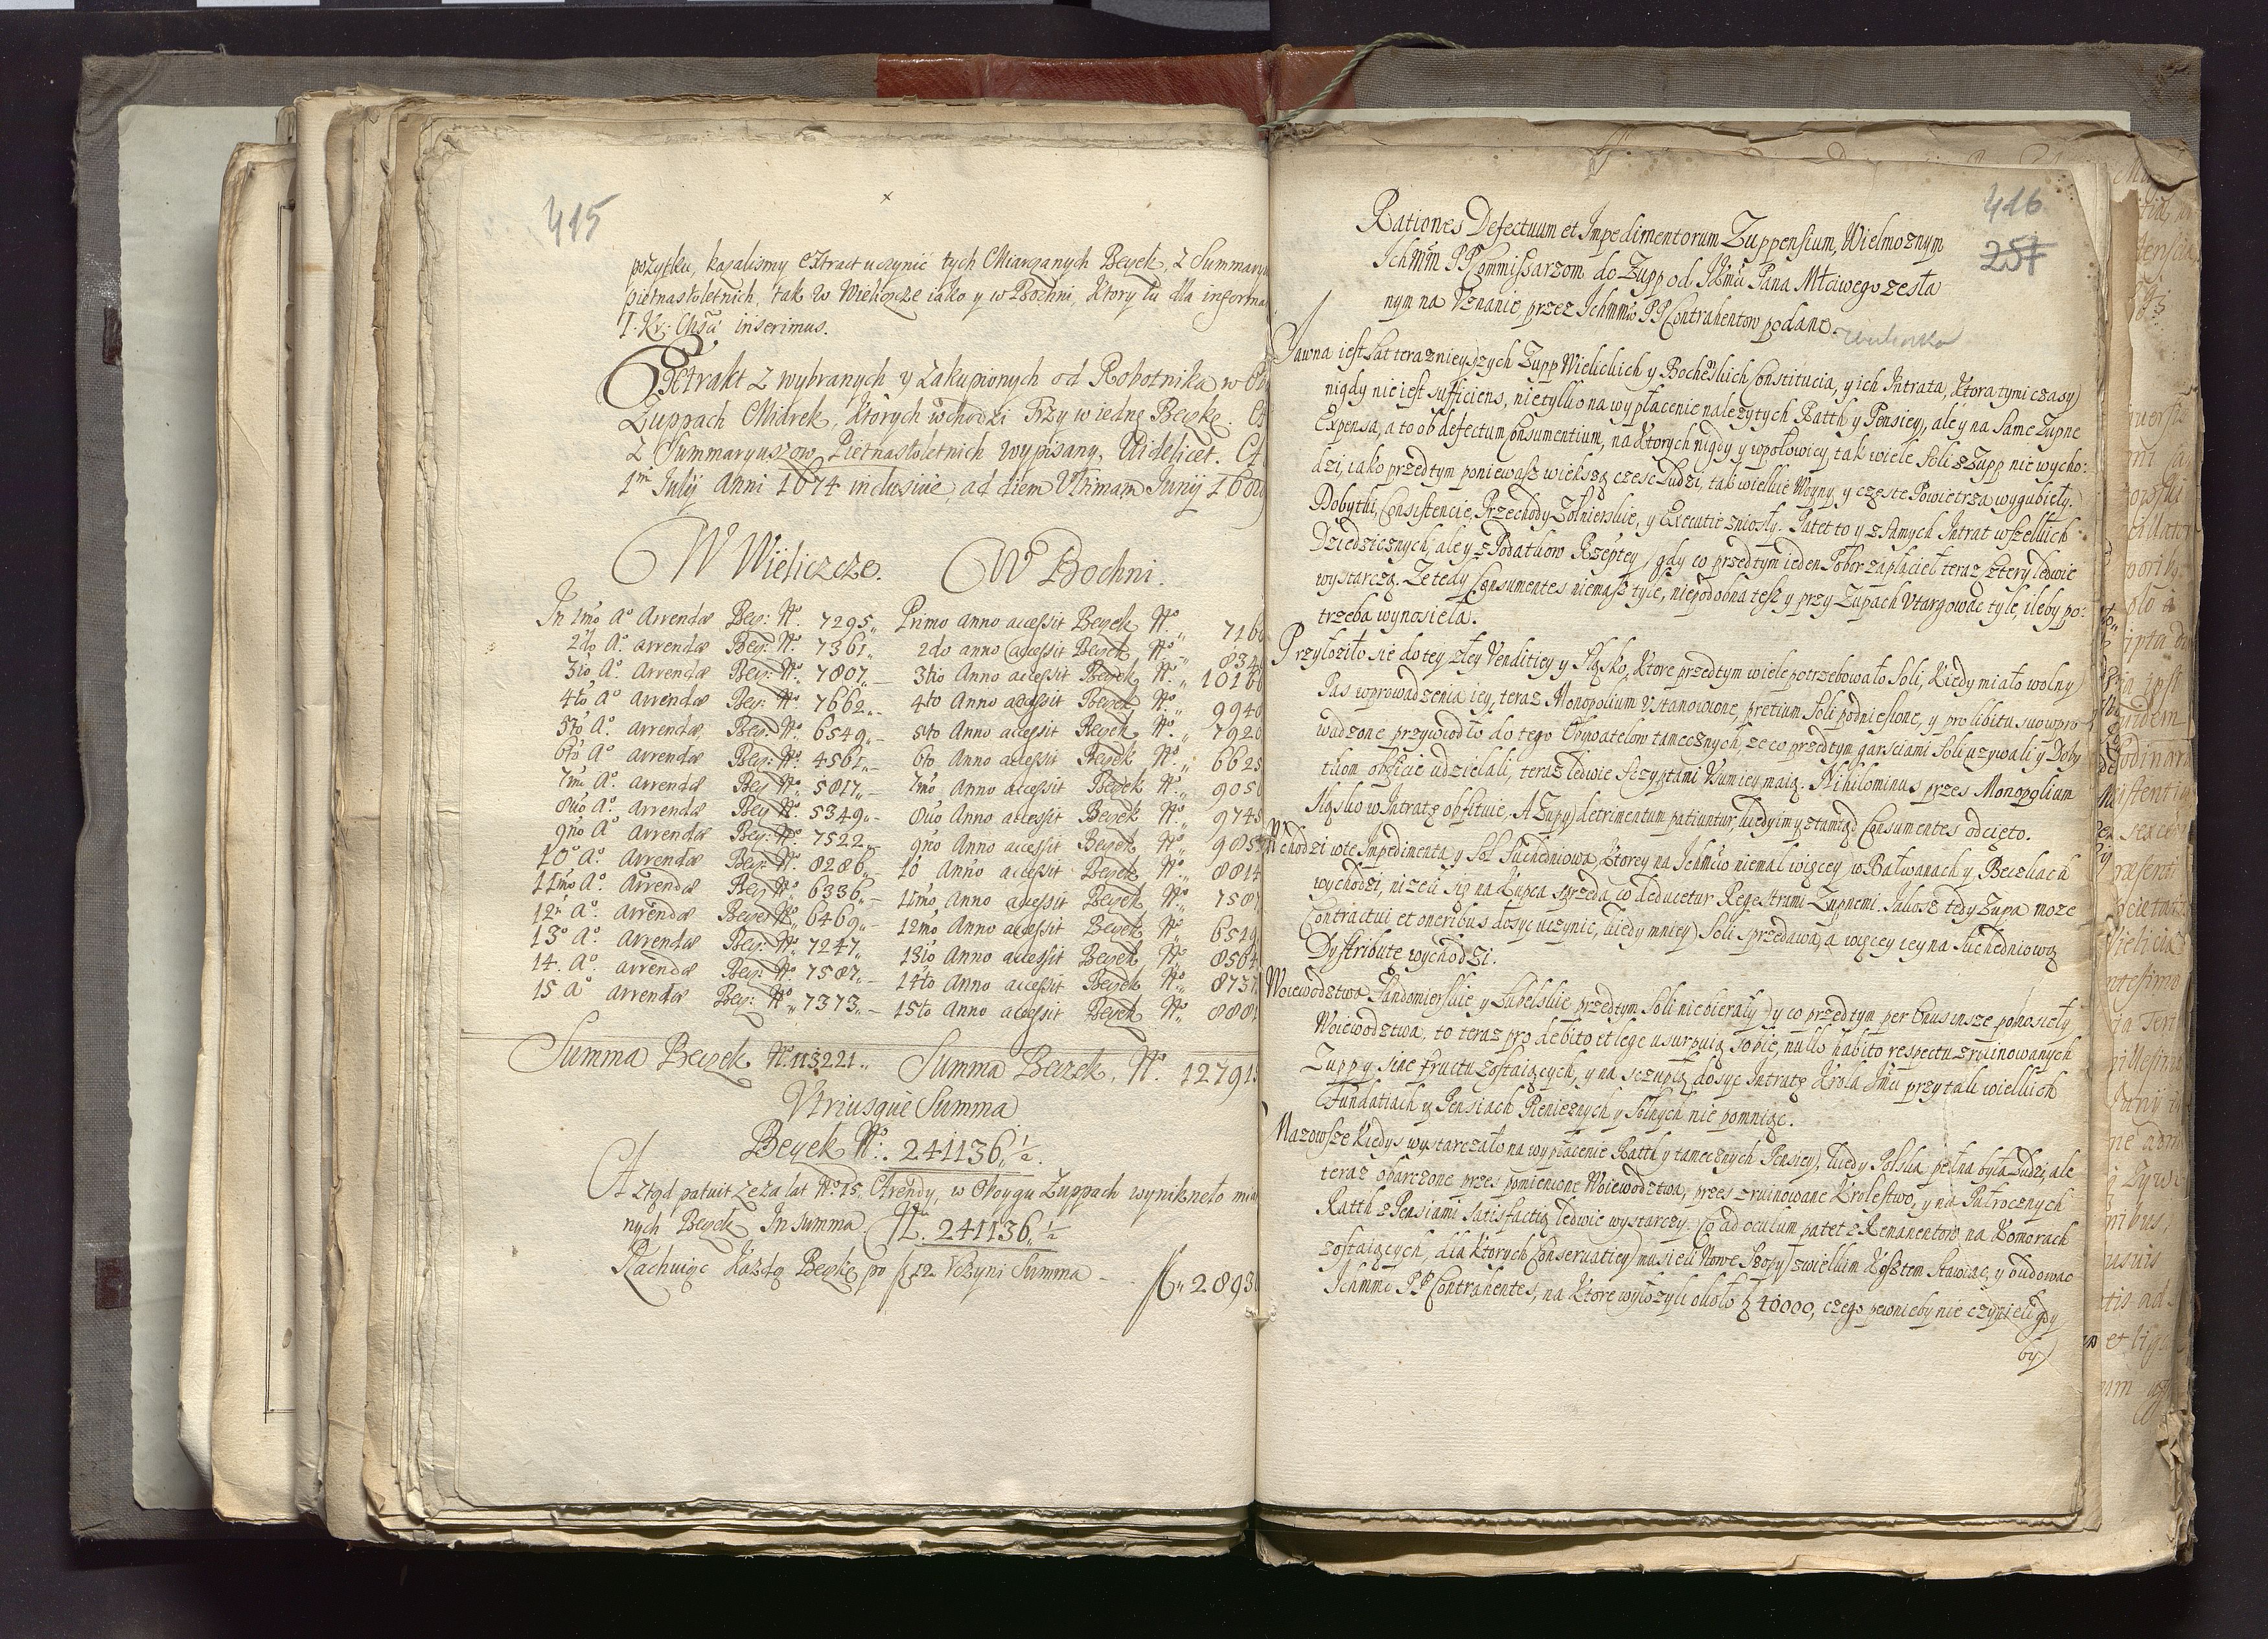 415
pożytku, kazalismy extract uczynić tych Miarganych Beczek, z Summary
pietnastoletnich, tak w Wieliczce iako y w Bochni, ktory tu dla informa
inserimus.
Extrakt z wybranych y zakupionych od Robotnika w
Zuppach Miarek, ktorych wchodzi Trzy w iedną Beczkę.
z Summaryuszow Pietnastoletnich wypisany, Videlicet.
1ma Julij Anni 1674 inclusive, ad diem Vltimam Junij 168
W Wieliczcze. W Bochni.
In 1mo Ao Arrendæ Becz: No. 7295 Primo anno accessit Beczek No. 716
2do Ao. arrendæ Becz: No. 7361 2do anno accessit Beczek No. 834
3tio Ao. arrendæ Becz: No. 7807 3tio Anno accessit Beczek No. 1016
4to Ao arrendæ Becz: No. 7662 4to Anno accessit Beczek No. 994
5to Ao. arrendæ Becz: No. 6549 5to Anno accessit Beczek No. 792
6to Ao arrendæ Becz: No. 4561 6to Anno accessit Beczek No. 662
7mo Ao. arrendæ Becz No. 5817 7mo Anno accessit Beczek No. 905
8uo Ao. arrendæ Becz No. 5349 8uo Anno accessit Beczek No. 974
9no Ao arrendæ Becz: No. 7522 9no Anno accessit Beczek No. 985
10o Ao. arrendæ Becz: No. 8286 10 Anno accessit Beczek No. 881
11mo Ao. arrendæ Becz No. 6336 11mo Anno accessit Beczek No. 758
12 Ao. arrendæ Beczek No. 6469 12mo Anno accessit Beczek No. 652
13o Ao. arrendæ Becz: No. 7247 13tio Anno accessit Beczek No. 856
14. Ao. arrendæ Becz: No. 7587 14to Anno accessit Beczek No. 873
15 Ao arrendæ Becz: No. 7373 15to Anno accessit Beczek No. 888
Summa Beczek No. 113221 Summa Beczek, No. 12791
Vtriusque Summa
Beczek No. 241136 1/2.
A ztąd patuit ze za lat No. 15. Arendy, w Oboygu Zuppach wyniknęło mia
nych Beczek In summa. No. 241136 1/2
Rachuiąc Każdą Beczkę po fl 12. Vczyni Summa fl 2893
416
257
Rationes Defectuum et Impedimentorum Zuppensium, Wielmoznym
Ichmm PP Commissarzom do Zupp od IKmci Pana Mściwego zesła
nym na Vznanie przez Ichmmw PP Contrahentow podane.
Jawna iest Sat teraznieyszych Zupp Wielickich y Bocheskich Constitucia, y ich Intrata, ktora tymi czasy
nigdy nie iest sufficiens, nie tylko na wypłacenie nalezytych Ratth y Pensiey, ale y na same Zupne
Expensa, a to ob defectum Consumentium, na ktorych nigdy y wpołowicy tak wiele Soli z Zupp nie wycho:
dzi, iako przedtym poniewasz większą częsc Ludzi, tak wielkie Woyny y częste Powietrza wygubieły.
Dobytki, Consistencie, Przechody Zołnierskie, y Executie zniosły. Patet to y z samych Intrat wszelkich
Dziedzicznych, ale y z Podatkow Rzeptey, gdy co przedtym ieden Pobor zapłacieł teraz sztery ledwie
wystarczą. Ze tedy Consumentes niemasz tyle, niepodobna tesz y przy Zupach Vtargowac tyle, ileby po:
trzeba wynosieła.
Przyłozyło sie do tey złey Venditiey y Sląsko, ktore przedtym wiele potrzebowało Soli, kiedy miało wolny
Pas wprowadzenia iey, teraz Monopolium Vstanowione, pretium Soli podniesione, y pro libitu suo wpro
wadzone przywiodło do tego Obywatelow tamecznych, ze co przedtym garsciami Soli uzywali y Doby
tkom obficie udzielali, teraz ledwie Sczyptami Vumiey maią. Nihilominus przes Monopolium
Sląsko w Intratę obfituie, A Zupy detrimentum patiuntur, kiedy im y ztamtąd Consumentes odcięto.
Wchodzi w te Impedimenta y Sol Suchedniowa, ktorey na Ichmcw niemal więcey w Bałwanach y Beczkach
wychodzi, nizeli się na Kupca sprzeda, co deducetur Regestrami Zupnemi. Jakosz tedy Zupa moze
Contractui et oneribus dosyc uczynic, kiedy mniey Soli sprzedawa, a więcey iey na Suchedniową
Dystributę wychodzi.
Woiewodztwa Sandomierskie y Lubelskie przedtym Soli nie bierały y co przedtym per abusum insze ponosieły
Woiewodztwa, to teraz pro debito et lege usurpuią sobie, nullo habito respectu zruinowanych
Zuppy sine fructu zostaiących, y na sczupłą dosyc Intratę Krola Jmci przy tak wielkich
Fundatiach y Pensiach Pienieznych y Solnych nie pomniąc.
Mazowsze kiedys wystarczało na wypłacenie Ratth y tamecznych Pensiey, kiedy Polska pełna była Ludzi, ale
teraz oparczone przes pomienione Woiewodztwa, przes zruinowane Krolestwo, y na Pułrocznych
Ratth z Pensiami Satisfactią ledwie wystarczy. Co ad oculum patet z Remanentow na Komorach
zostaiących, dla ktorych Conseruatiey musieli Nowe Szopy z wielkim Kosztem Stawiac, y budowac
Ichmmc PP Contrahentes, na ktore wyłozyli około fl 40000, czego pewnieby nie czynieli gdy
by